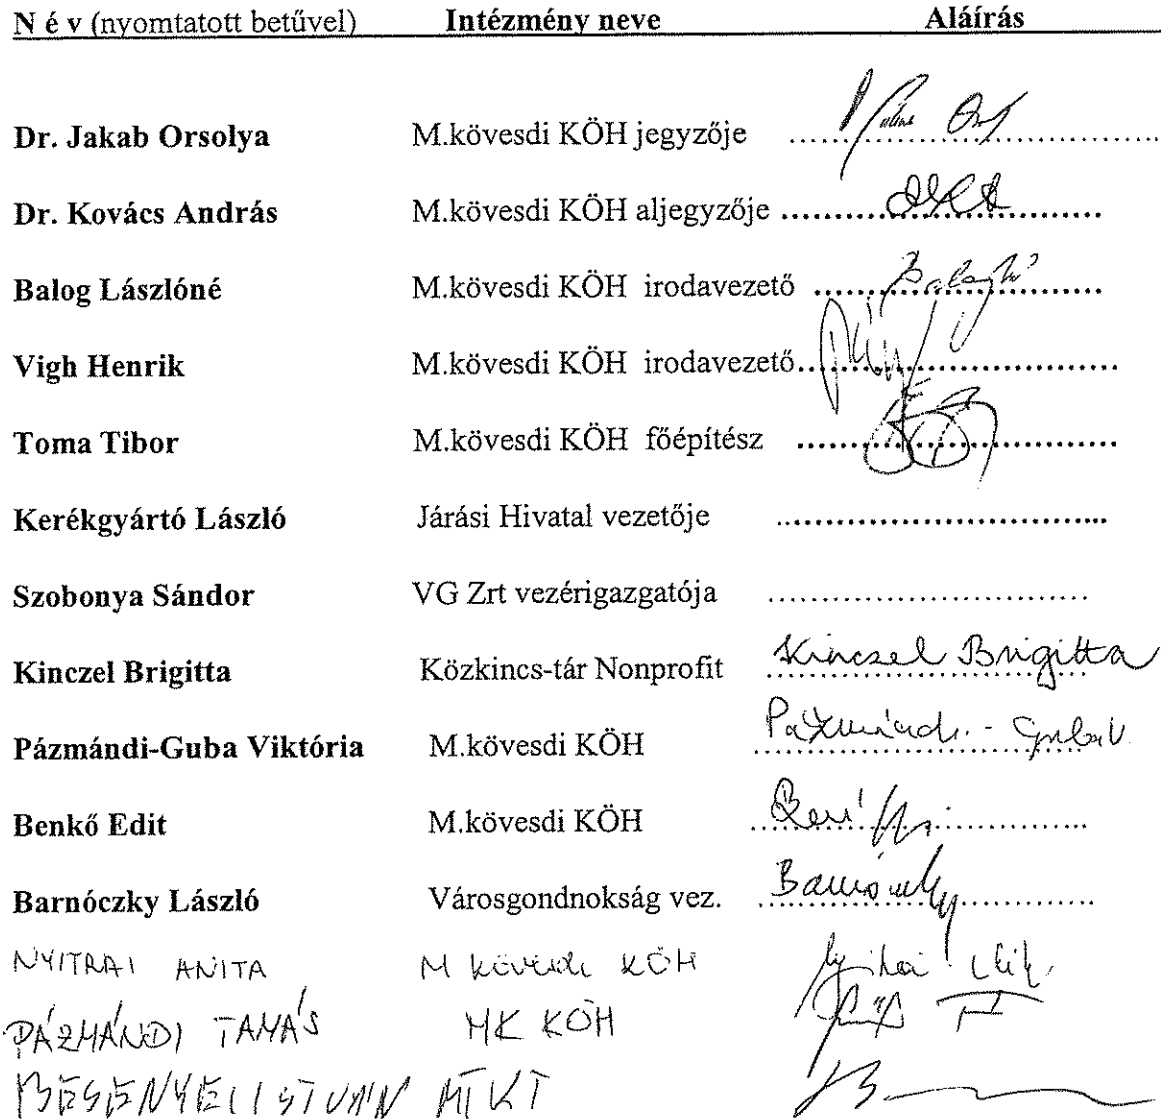 N é v (nyomtatott betűvel) Intézmény neve Aláírás
Dr. Jakab Orsolya M.kövesdi KÖH jegyzője
Dr. Kovács András M.kövesdi KÖH aljegyzője
Balog Lászlóné M.kövesdi KÖH irodavezető
Vigh Henrik M.kövesdi KÖH irodavezető
Toma Tibor M.kövesdi KÖH főépítész
Kerékgyártó László Járási Hivatal vezetője
Szobonya Sándor VG Zrt vezérigazgatója
Kinczel Brigitta Közkincs-tár Nonprofit Kinczel Brigitta
Pázmándi-Guba Viktória M.kövesdi KÖH Pázmándi-Guba V.
Benkő Edit M.kövesdi KÖH
Barnóczky László Városgondnokság vez. Barnóczky
NYITRAI ANITA M kövesdi KÖH
PÁZMÁNDI TAMÁS MK KÖH
BESENYEI ISTVÁN